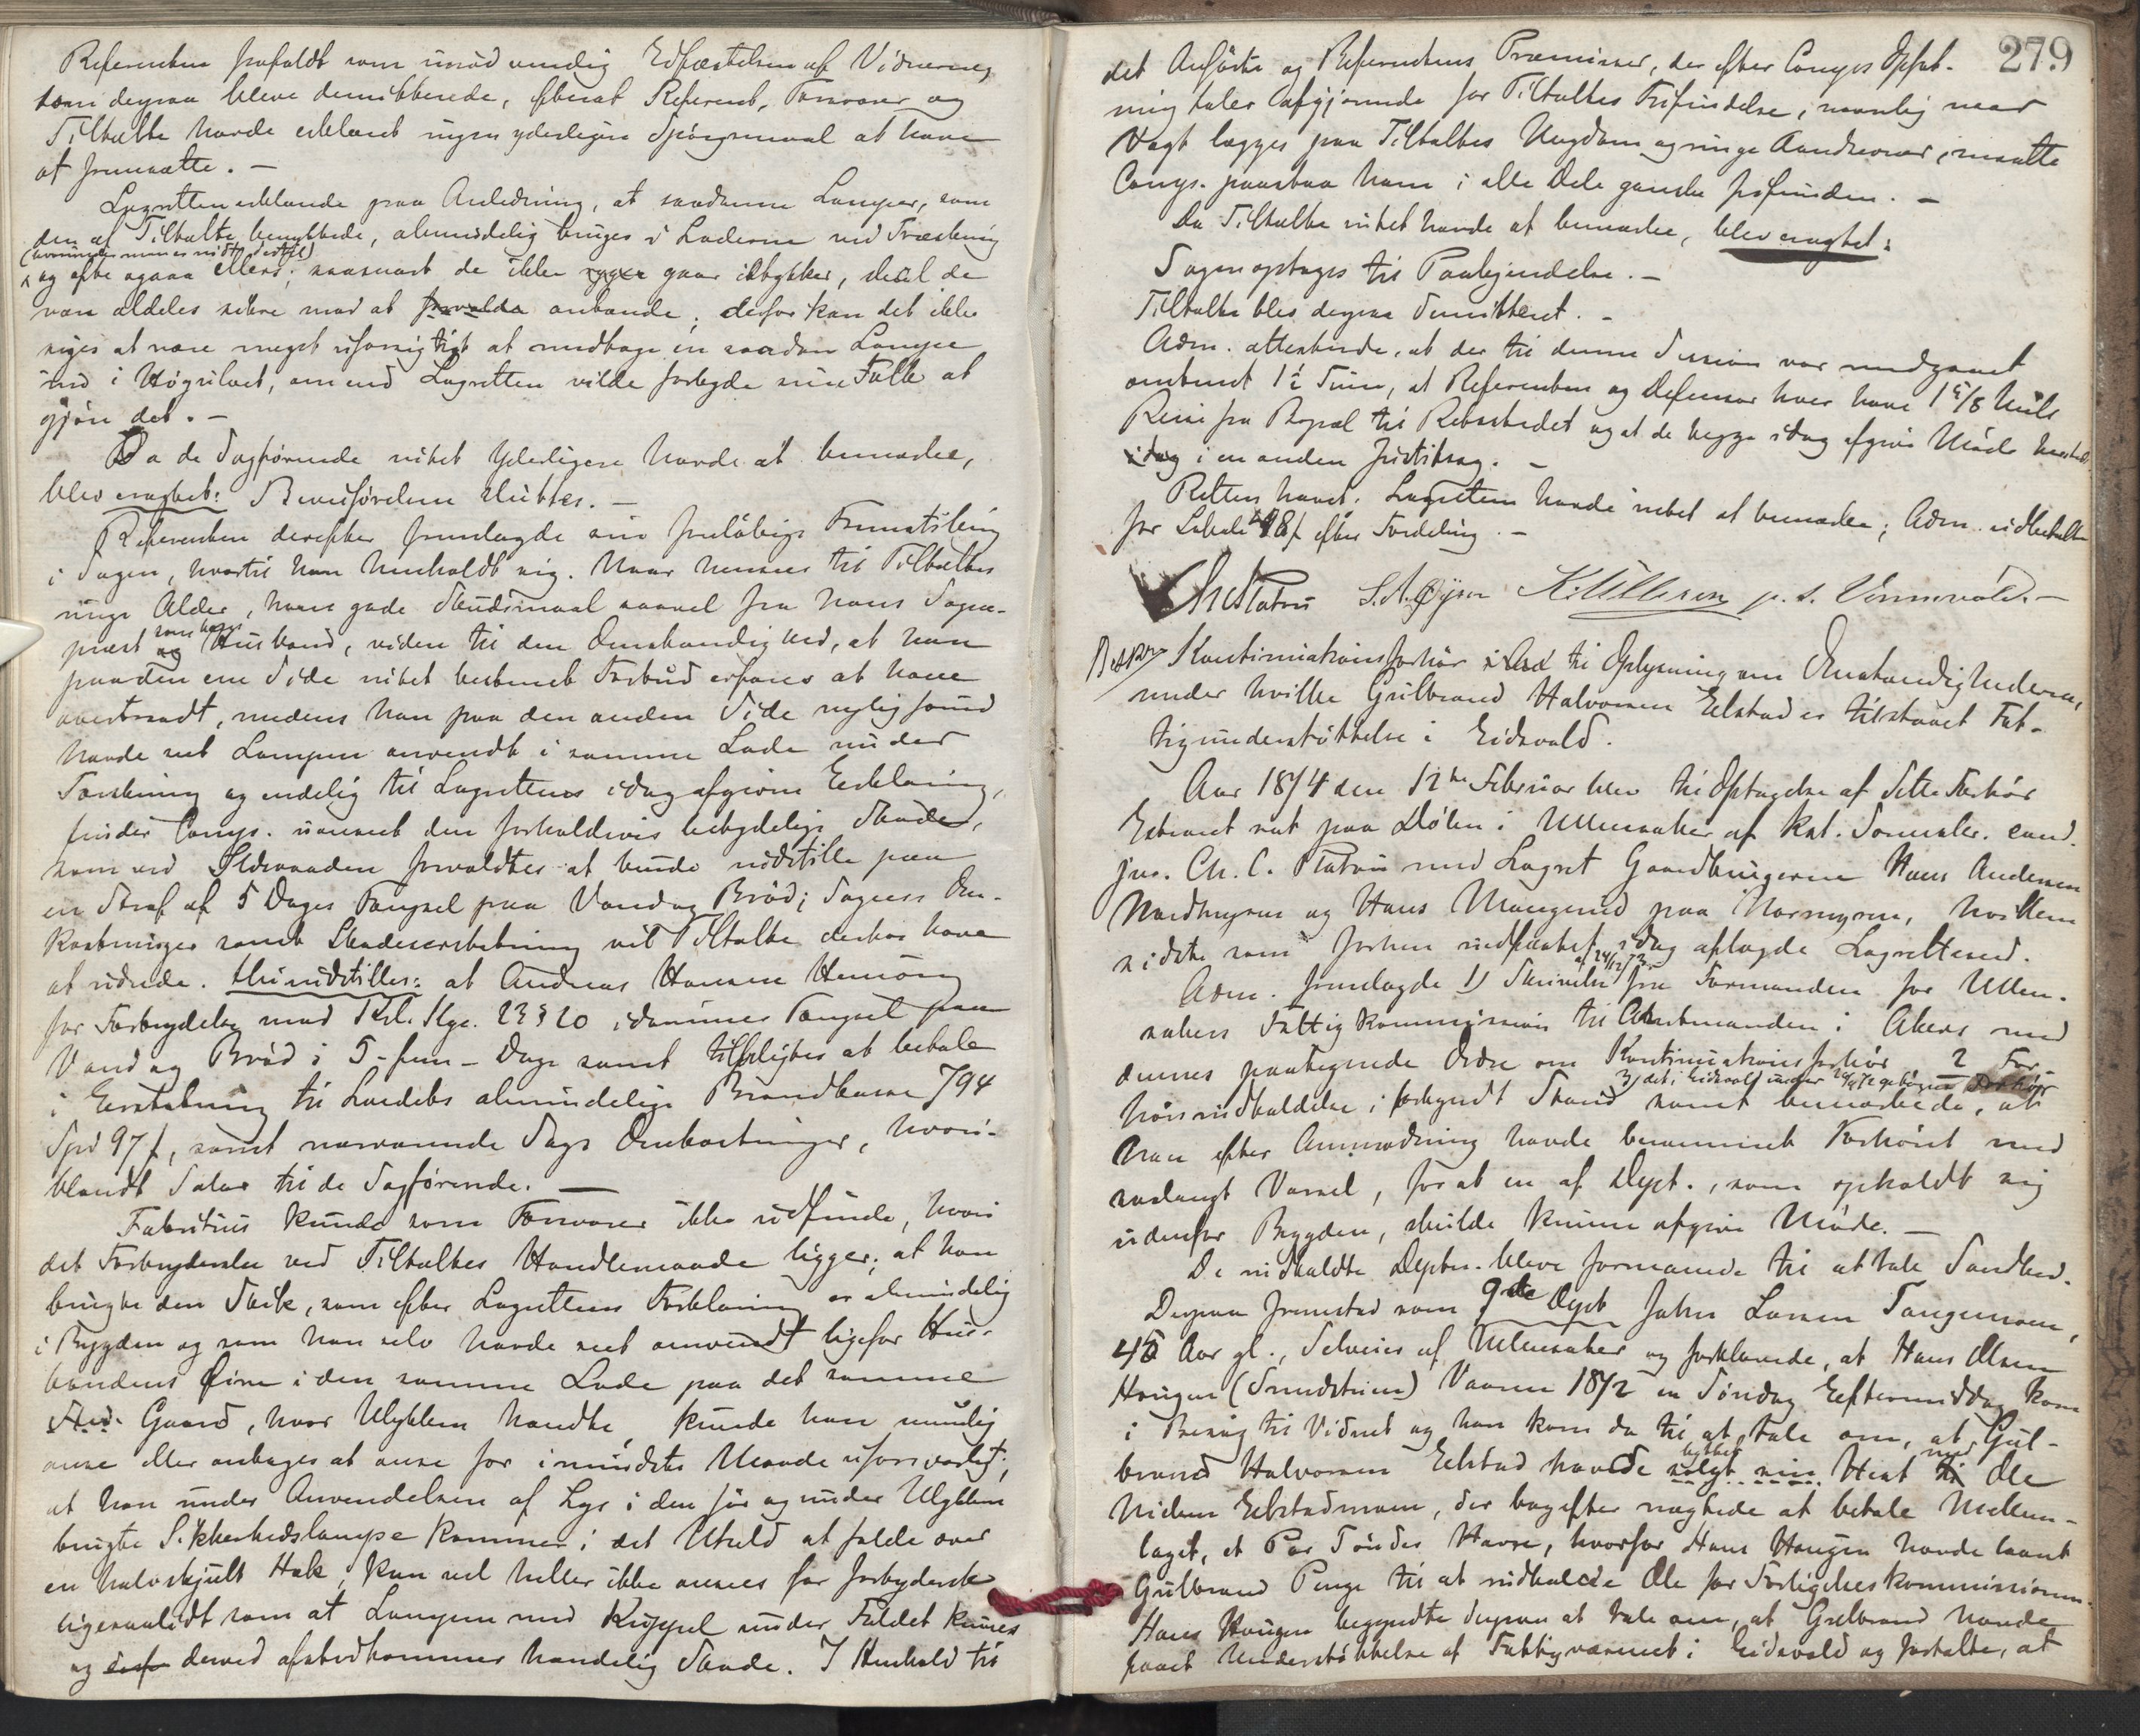 Referenten frafaldt som unödvendig Edfæstelsen af Vidnerne,
som derpaa bleve demitterede, efterat Referent, Forsvarer og
Tiltalte havde erklæret ingen yderligere Spörgsmaal at have
at fremsætte. —
Lagretten erklærede paa Anledning, at saadanne Lamper, som
den af Tiltalte benyttede, almindelig bruges i Laderne ved Træskning
og ofte ogsaa ellers; saasnart de ikke ryger gaar itykker, skal de
være aldeles sikre mod at forvolde antænde; derfor kan det ikke
siges at være meget uforsigtigt at medtage en saadan Lampe
ind i Høgulvet, om end Lagretten vilde forbyde sine Folk at
gjöre det. —
Da de Sagførende intet yderligere havde at bemærke,
blev eragtet: Bevisførelsen sluttes. —
Referenten derefter fremlagde sin foreløbige Fremstilling
i Sagen, hvortil han henholdt sig. Naar henses til Tiltaltes
unge Alder, hans gode Skudsmaal saavel fra hans Sogne-
præst og som hans Husbond, videre til den Omstændighed, at han
paa den ene Side intet bestemt Forbud erfares at have
overtraadt, medens han paa den anden Side nylig forud
havde seet Lampen anvendt i samme Lade under
Tærskning og endelig til Lagrettens idag afgivne Erklæring,
finder Comps. uanseet den forholdsvis betydelige Skade,
som ved Ildsvaaden forvoldtes at burde indstille paa
en Straf af 5 Dages Fængsel paa Vand og Brød; Sagens Om-
kostninger samt Skadeserstatning vil Tiltalte derhos have
at udrede. Thi indstilles: at Andreas Hansen
for Forbrydelse mod Krl. Kap. 22 § 20 idømmes Fængsel paa
Vand og Brød i 5-fem- Dage samt tilpligtes at betale
i Erstatning til Landets almindelige Brandkasse 794
Spd 97 ſ, samt nærværende Sags Omkostninger, hvori-
blandt Salær til de Sagførende. —
Fabritius kunde som Forsvarer ikke udfinde, hvori
det Forbryderske ved Tiltaltes Handlemaade ligger; at han
brugte den Skik, som efter Lagrettens Forklaring er almindelig
i Bygden og som han selv havde seet anvendt ligefor Hus-
bondens Øine i den samme Lade paa det samme
Gaard, hvor Ulykken hændte, kunde han umulig
anse eller antages at anse for i mindste Maade uforsvarligt;
at han under Anvendelsen af Lys i den før og under Ulykken
brugte Sikkerhedslampe kommer i det Uheld at falde over
en halvskjult Hak, kan vel heller ikke ansees for forbydersk
ligesaalidt som at Lampen med Kuppel under Faldet knuses
og derved afstedkommer hændelig Skade. I Henhold til
279
det Anførte og Referentens Præmisser, der efter Comps Opfat-
ning taler afgjørende for Tiltaltes Frifindelse, navnlig naar
Vægt lægges paa Tiltaltes Ungdom og ringe Aandsevner, maatte
Comps. paastaa ham i alle Dele ganske frifunden. —
Da Tiltalte intet havde at bemærke, blev eragtet:
Sagen optages til Paakjendelse. —
Tiltalte blev derpaa demitteret. —
Adm. attesterede, at der til denne Session var medgaaet
omtrent 1½ Time, at Referenten og Defensor hver have 1⅝ Miils
Reise fra Bopæl til Retsstedet og at de begge idag afgive Møde
idag i en anden Justitssag. —
Retten hævet. Lagretten havde intet at bemærke; Adm. udbetalte
for Lokale 48 ſ efter Fordeling. —
Ch. Platou S. A. Øyen K. Ullesen p. s. Vormvald. —
Beskr. Kontinuationsforhör til Oplysning om Omstændighederne,
under hvilke Gulbrand Halvorsen Eelstad er tilstaaet Fat-
tigunderstøttelse i Eidsvold.
Aar 1874 den 12te Februar blev til Optagelse af dette Forhör
Extraret sat paa Dølen i Ullensaker af kst. Sorenskr. cand.
jur. Ch. C. Platou med Lagret Gaardbrugerne Hans Andersen
Nordmyren og Hans Mangerud paa Normyren, hvilken
sidste som forhen uedfæstet idag aflagde Lagretteseed.
Adm. fremlagde 1) Skrivelse af 24/12 73 fra Formanden for Ullen-
sakers Fattigkommission til Amtmanden i Akers med
dennes paategnede Ordre om Kontinuationsforhör 2 For-
3) det i Eidsvold under
hörsindkaldelse i forkyndt Stand samt bemærkede, at
han efter Anmodning havde berammet Forhöret med
saalangt Varsel, for at en af Dept., som opholdt sig
udenfor Bygden, skulde kunne afgive Møde. —
De indkaldte Depter. bleve formanede til at tale Sandhed.
Derpaa fremstod som 9de Dept John Larsen Tangemoen,
45 Aar gl., Selveier af Ullensaker og forklarede, at Hans Olsen
Haugen (Sundstuen) Vaaren 1872 en Søndag Eftermiddag kom
i Besøg til Vidnet og han kom da til at tale om, at Gul-
brand Halvorsen Eelstad havde solgt byttet sin Hest til med Ole
Nielsen Eelstadmoen, der bagefter nægtede at betale Mellem-
laget, et Par Tönder Havre, hvorfor Hans Haugen havde laant
Gulbrand Penge til at indkalde Ole for Forligelseskommissionen.
Hans Haugen begyndte derpaa at tale om, at Gulbrand havde
faaet Understøttelse af Fattigvæsenet i Eidsvold og fortalte, at